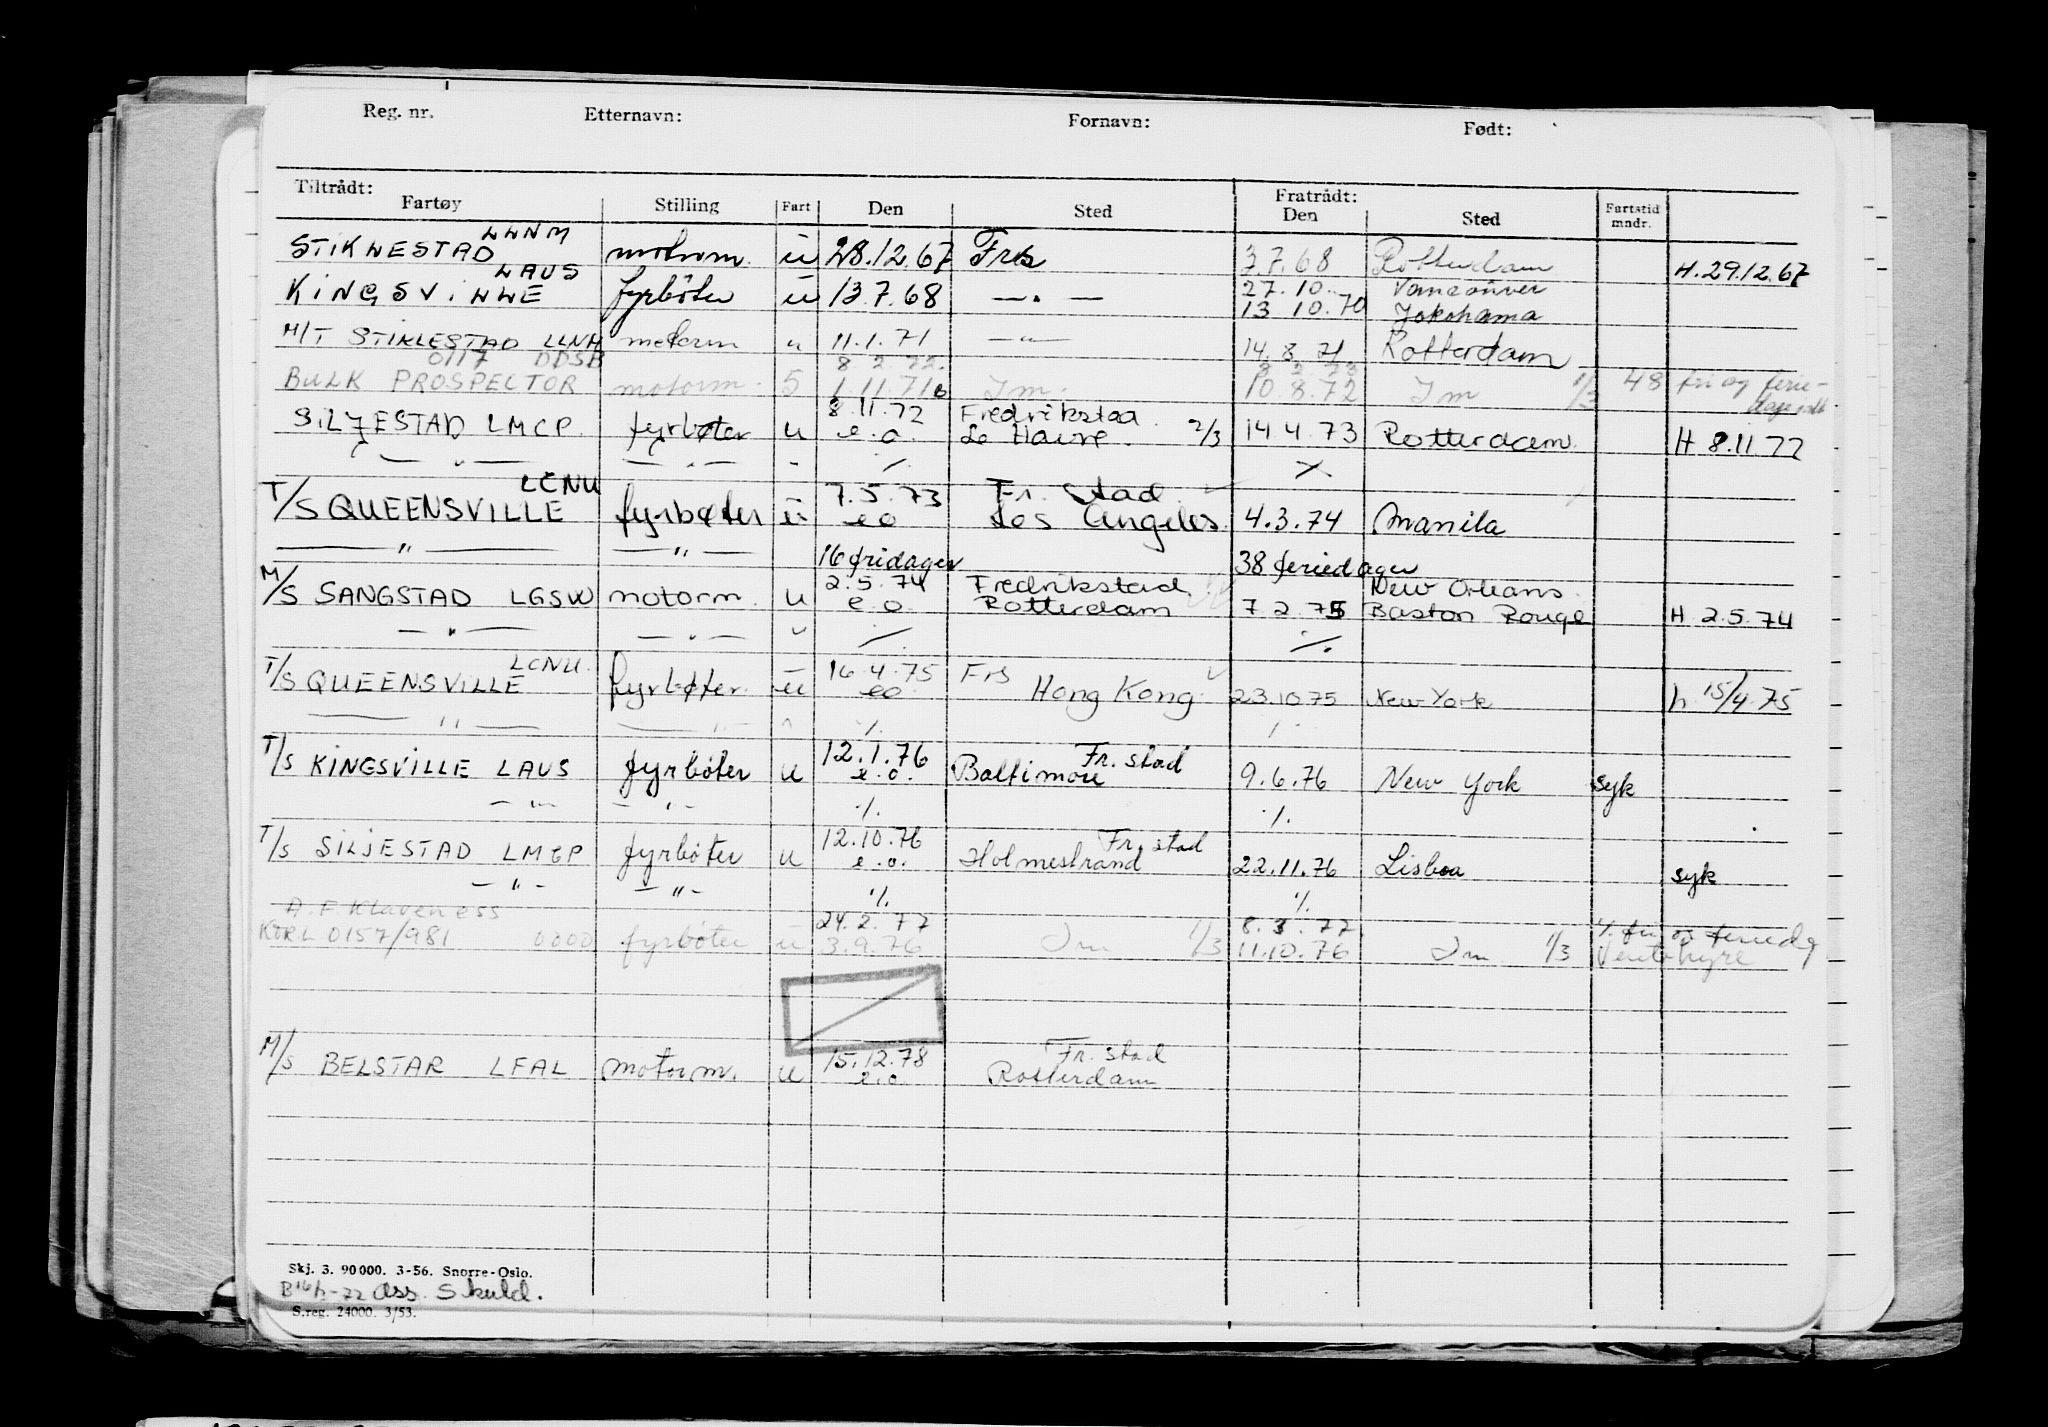 Reg. nr. Etternavn: Fornavn: Født:
Tiltrådt: Fratrådt:
Fartøy Stilling Fart Den Sted Den Sted Fartstid mndr.
LLNM
STIKLESTAD motorm. u 28.12.67 Frs 3.7.68 Rotterdam H. 29.12.67
LAUS 27.10. Vancouver
KINGSVILLE fyrbøter u 13.7.68 — . — 13 10.70 Jokohama
M/T STIKLESTAD LLNM motorm u 11.1.71 — " — 14.8.71 Rotterdam
0117 DDSB 8.2.72.
BULK PROSPECTOR motorm. 5 1.11.71 Im. 10.8.72 Im 1/3 48 fri og ferie-
8.11.72 Fredrikstad
SILJESTAD LMCP. fyrbøter u e.o. Le Havre. 2/3 14.4.73 Rotterdam. H 8.11.72
— " — — " — - ./. ./.
LCNU 7.5.73 Fr. Stad
T/S QUEENSVILLE fyrbøter u eo Los Angeles. 4.3.74 Manila
— " — — " — 16 fridager 38 feriedager
2.5.74 Fredrikstad New Orleans.
M/S SANGSTAD LGSW motorm. u e.o. Rotterdam 7.2.75 Baston Rouge H. 2.5.74
— " — — " — " ./. ./.
LCNU. 16.4.75 Frs
T/S QUEENSVILLE fyrbøter. u eo Hong Kong 23.10.75 New York h. 15/4.75
— " — — " — " ./. ./.
12.1.76 Fr. stad
T/S KINGSVILLE LAUS fyrbøter u e.o. Baltimore 9.6.76 New York syk
— " — — " — ./. ./.
12.10.76 Fr. stad
T/S SILJESTAD LMCP fyrbøter u e.o. Holmestrand 22.11.76 Lisboa syk
— " — — " — ./. ./.
A.F. Klaveness 24.2.77 8.3.77 ./. fri og ferieda
KORL 0157/981 0000 fyrbøter u 3.9.76 Im 1/3 11.10.76 Im 1/3 Ventehyre
15.12.78 Fr. stad
M/S BELSTAR LFAL motorm. u e.o. Rotterdam
Skj. 3. 90000. 3-56. Snorre-Oslo.
Ass. Skuld.
S.reg. 24000. 3/53.